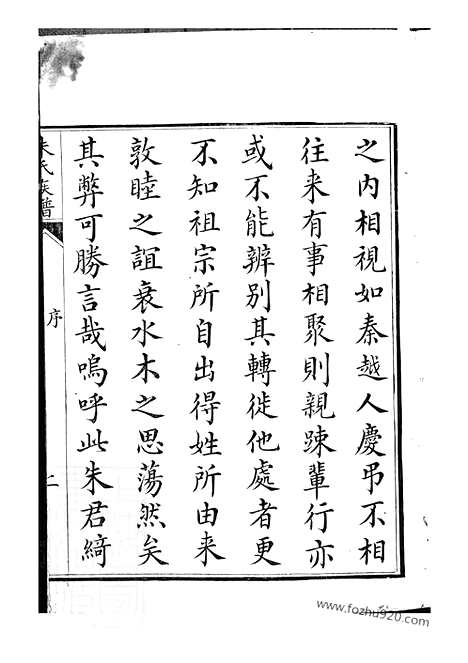 之内相視如秦越人慶弔不相
往来有事相聚則親踈軰行亦
或不能辨别其轉徙他處者更
不知祖宗所自出得姓所由来
敦睦之誼衰水木之思蕩然矣
其弊可勝言哉嗚呼此朱君綺
朱氏族譜
序
二
www.fozhu920.com